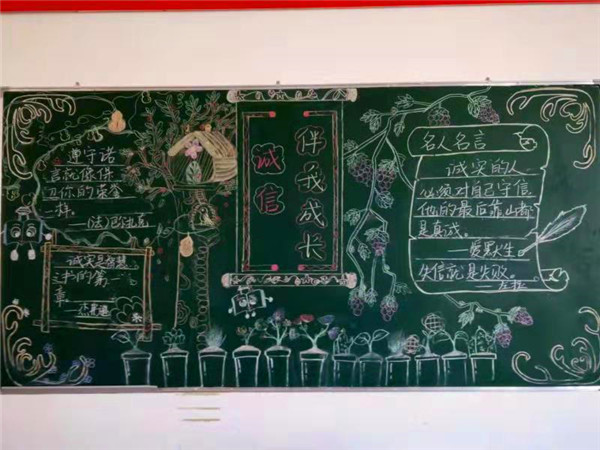 遵守诺
言就像保
卫你的荣誉
一样。
——(法)
诚实是智慧
之书的第一
章
——杰弗逊
诚信
伴我成长
名人名言
诚实的人
必须对自己守信
他的最后靠山就
是真诚。
——爱默生
失信就是失败。
——左拉